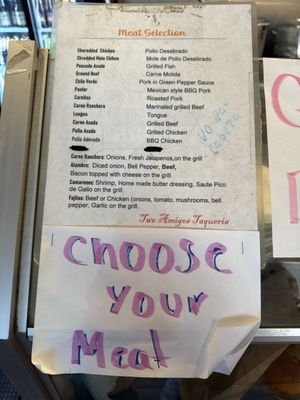 Meat Selection
Shereded Chicken Pollo Desebrado
Shredded Mole Chiken Mole de Pollo Desebrado
Pescado Asado Grilled Fish
Ground Beef Carne Molida
Chile Verde Pork in Green Pepper Sauce
Pastor Mexican style BBQ Pork
Carnitas Roasted Pork
Carne Ranchera Marinated grilled Beef
Lengua Tongue
Carne Asada Grilled Beef
Pollo Asado Grilled Chicken
Pollo Adovado BBQ Chicken
Carne Ranchera: Onions, Fresh Jalapenos,on the grill
Alambre: Diced onion, Bell Pepper, Beef,
Bacon topped with cheese on the grill.
Camarones: Shrimp, Home made butter dressing, Saute Pico
de Gallo on the grill.
Fajitas: Beef or Chicken (onions, tomato, mushrooms, bell
pepper, Garlic on the grill.
Two Amigos Taqueria
Choose
Your
Meat